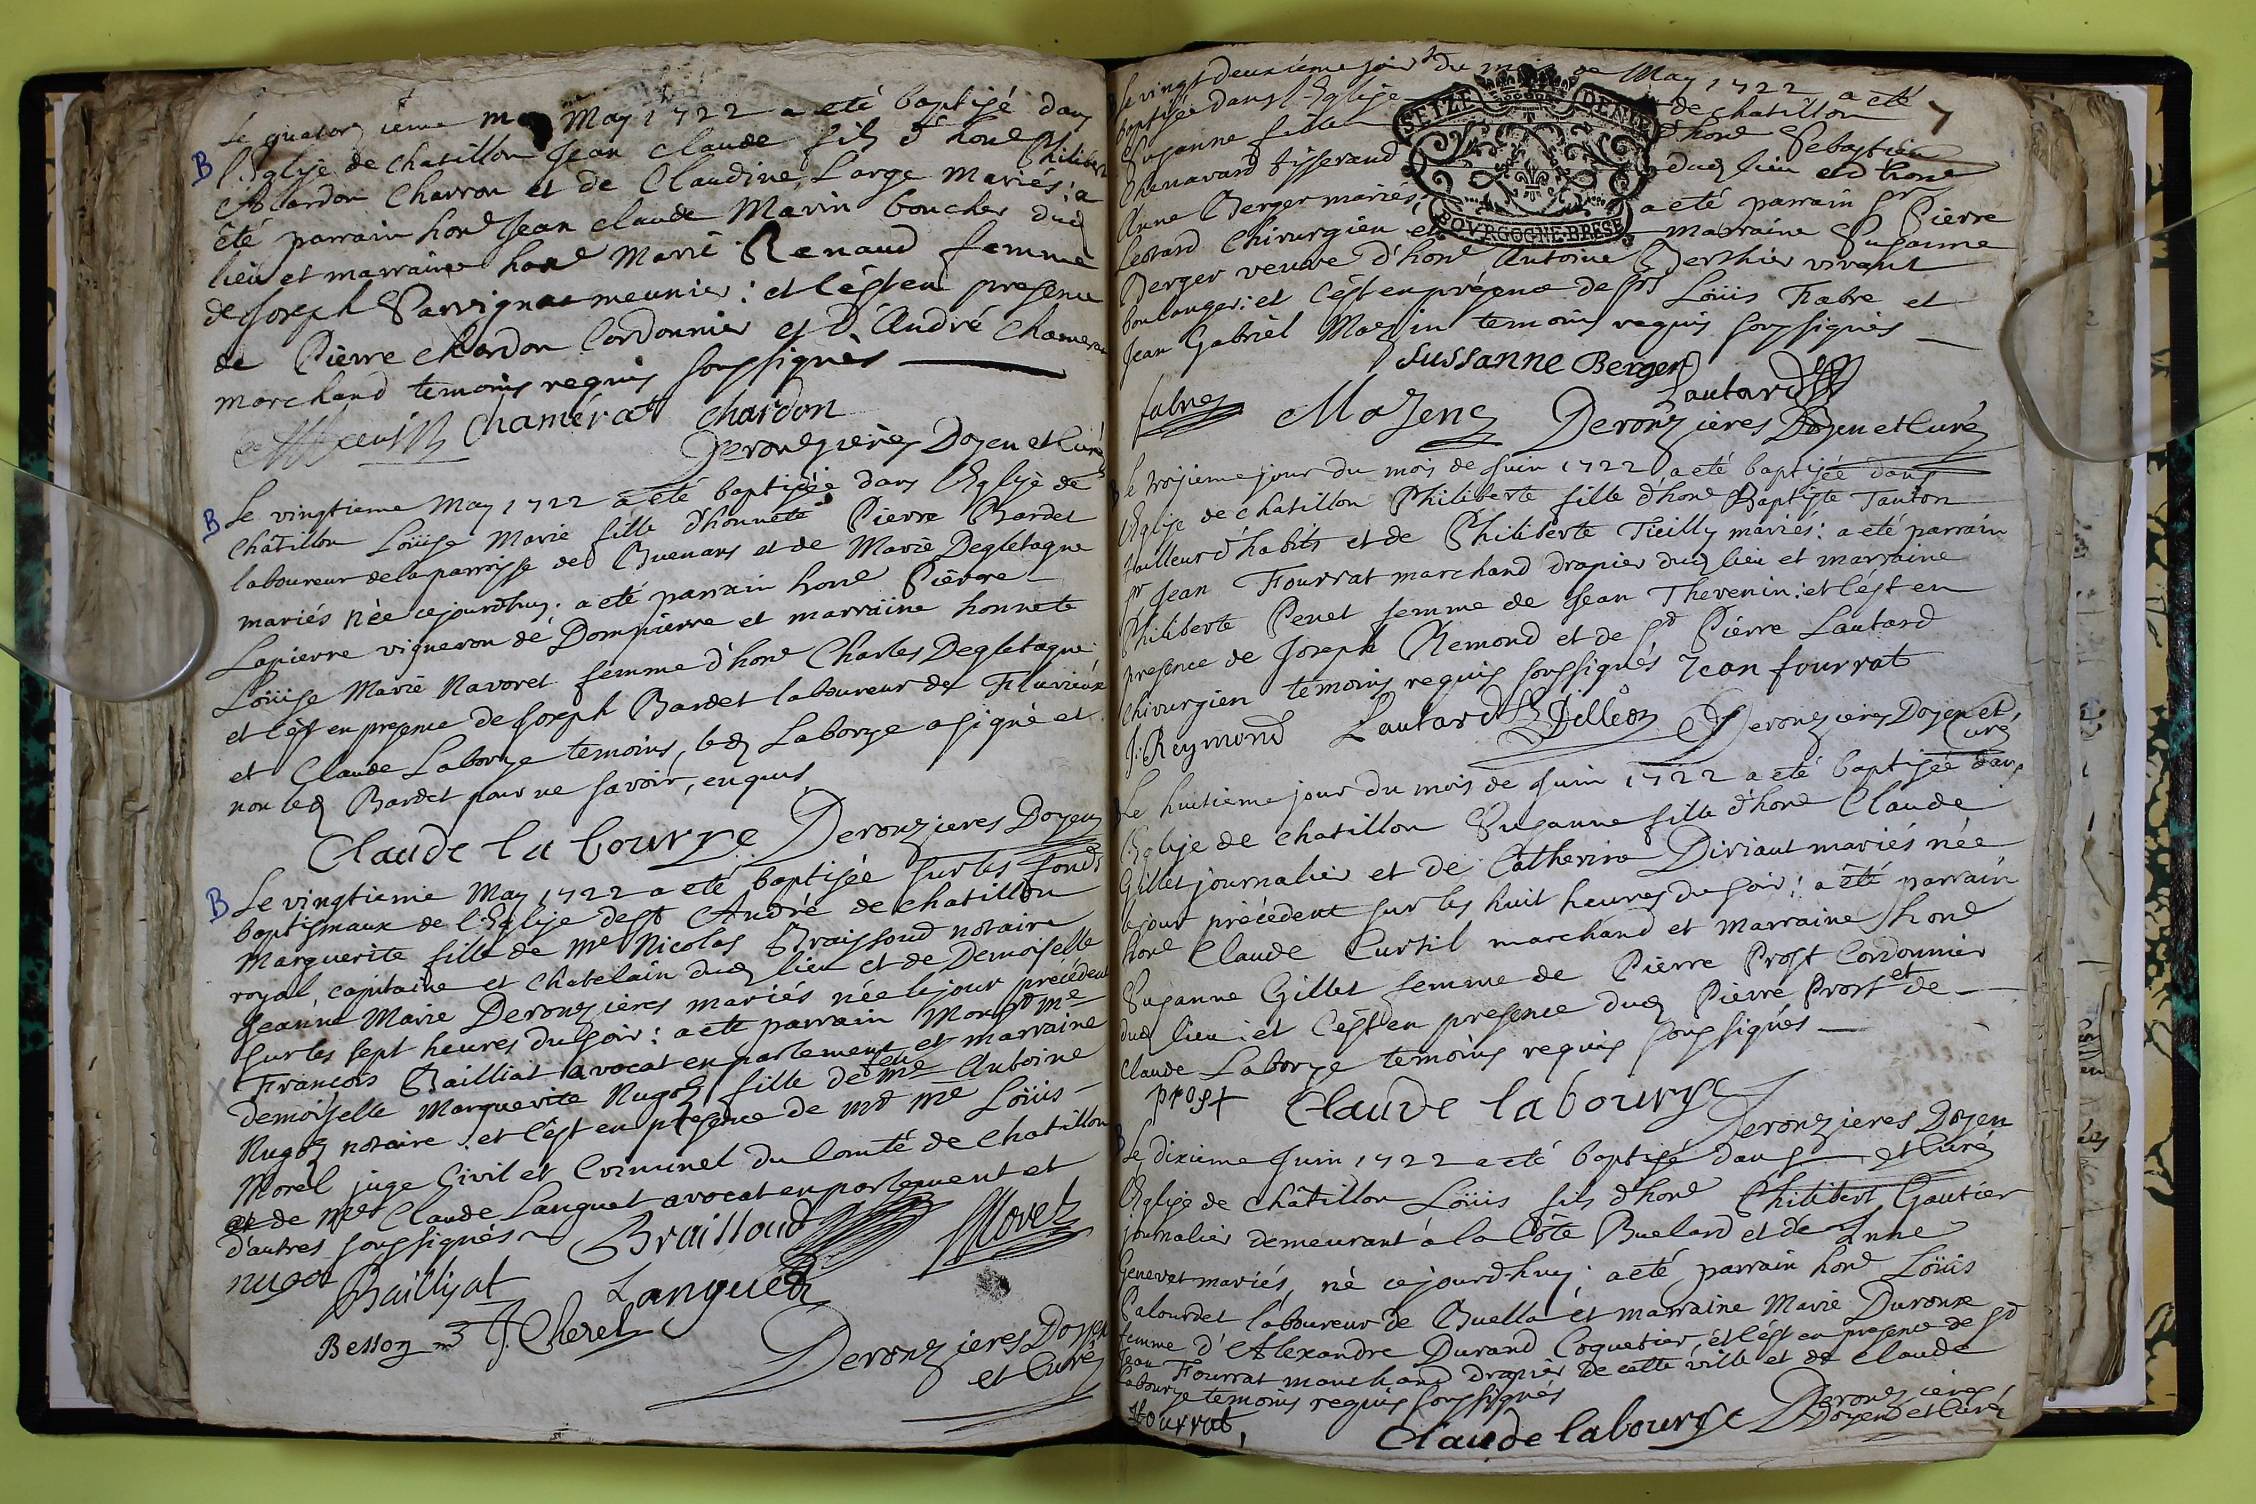 B
Le quatorzieme May 1722 a eté baptisé dans
l'Eglise de Chatillon Jean Claude fils d'hone Philibert
Chardon Charron et de Claudine Large mariés: a
été parrain hone Jean Claude Marin boucher dud
lieu et marraine hone Marie Renaud femme
de Joseph meunier: et c'est en presence
de Pierre Chardon Cordonnier et d'André Chamerat
marchand temoins requis soussignés
Chamérat chardon
Deronzieres Doyen et Curé
B
Le vingtieme May 1722 a eté baptisée dans l'Eglise de
Châtillon Loüise Marie fille d'honnete Pierre Bardet
laboureur de la parroisse de Buenans et de Marie Degletagne
mariés née cejourdhuy: a eté parrain hone Pierre
Lapierre vigneron de Dompierre et marraine honnete
Loüise Marie Navoret femme d'hone Charles Degletagne
et c'est en presence de Joseph Bardet laboureur de Fluvieux
et Claude Laborye temoins, led Laborye a signé et
non led Bardet pour ne savoir, enquis
Claude la bourye Deronzieres Doyen
B
Le vingtieme May 1722 a eté baptisée sur les fonds
baptismaux de l'Eglise de St André de chatillon
Marguerite fille de me Nicolas Braissoud notaire
royal, capitaine et chatelain dud lieu et de Demoiselle
Jeanne Marie Deronzieres mariés née le jour précédent
sur les sept heures du soir: a eté parrain me
X
François Bailliat avocat en parlement et marraine
demoiselle Marguerite Nugoz fille de feu me Antoine
Nugoz notaire: et c'est en presence de me Loüis
Morel juge Civil et Criminel du Comté de Chatillon
et de me Claude Languet avocat en parlement et
d'autres soussignés
Braissoud Morel
nugoz
Bailliat Languet
Besson J Cheret
Deronzieres Doyen
et Curé
7
SEIZE DENIE
BOVRGOGNE·BRESSE
Le vingt deuxiéme jour du mois de May 1722 a eté
baptisée dans l'Eglise de chatillon
Susanne fille d'hone Sebastien
Chenavard tisserand dud lieu et d'hone
Anne Berger mariés a eté parrain Sr Pierre
Leotard Chirurgien et marraine Susanne
Berger veuve d'hone Antoine Berthier vivant
boulanger: et c'est en présence de srs Loüis Fabre et
Jean Gabriel temoins requis soussignés
Sussanne Berger
Lautard
fabre Deronzieres Doyen et Curé
Le troisieme jour du mois de Juin 1722 a eté baptisée dans
l'Eglise de chatillon Philiberte fille d'hone Baptiste Tanton
tailleur d'habits et de Philiberte mariés: a eté parrain
sr Jean Fourrat marchand drapier dud lieu et marraine
Philiberte Penet femme de Jean Thevenin: et c'est en
presence de Joseph Remond et de Sr Pierre Lautard
chirurgien temoins requis soussignés Jean fourrat
J. Reymond Lautard Deronzieres Doyen et
Curé
Le huitieme jour du mois de Juin 1722 a eté baptisée dans
l'Eglise de chatillon Susanne fille d'hone Claude
Gillet journalier et de Catherine mariés née
le jour précédent sur les huit heures du soir: a été parrain
hone Claude Curtil marchand et marraine hone
Susanne Gillet femme de Pierre Prost Cordonnier
dud lieu: et c'est en presence dud Pierre Prost et de
Claude Laborye temoins requis soussignés
prost Claude labourye
Deronzieres Doyen
et Curé
Le dixieme Juin 1722 a eté baptisé dans
l'Eglise de Châtillon Loüis fils d'hone Philibert Gautier
journalier demeurant à la Côte Buelard et de Anne
Genevet mariés, né cejourd'huy: a eté parrain hone Loüis
Palourdet laboureur de Buella et marraine Marie Duroux
femme d'Alexandre Durand Coquetier, et c'est en presence de sr
Jean Fourrat marchand drapier de cette ville et de Claude
Labourye temoins requis soussignés
fourrat Claude labourye Deronzieres
Doyen et Curé